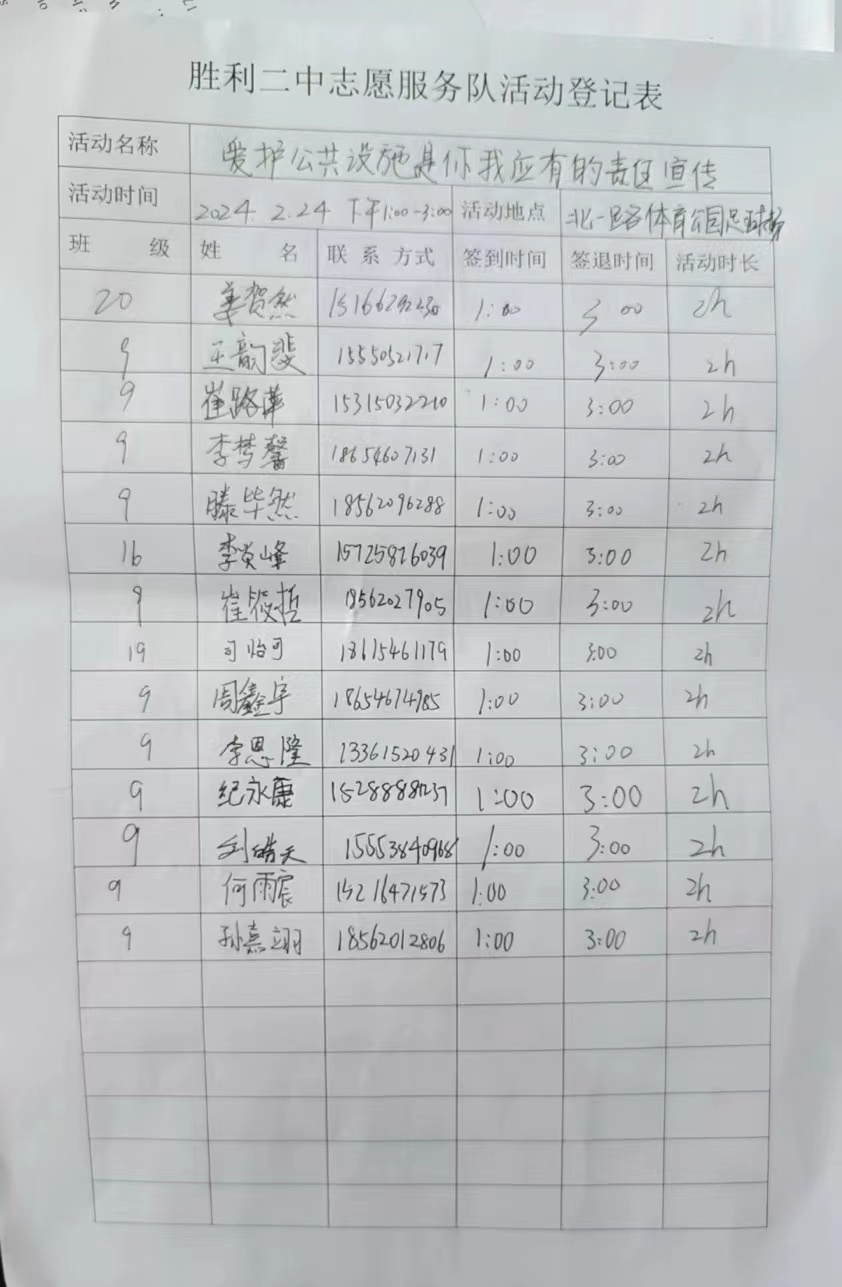 胜利二中志愿服务队活动登记表
活动名称 爱护公共设施是你我应有的责任宣传
活动时间 2024.2.24 下午1:00-3:00 活动地点 北一路体育公园足球场
班 级 姓 名 联系方式 签到时间 签退时间 活动时长
20 姜贺然 1:00 3:00 2h
9 王韵斐 15550521717 1:00 3:00 2h
9 崔路萍 15315032210 1:00 3:00 2h
9 李梦馨 18654607131 1:00 3:00 2h
9 滕毕然 18562096288 1:00 3:00 2h
16 李英峰 15725826039 1:00 3:00 2h
9 崔筱哲 18562027905 1:00 3:00 2h
19 司怡可 18615461179 1:00 3:00 2h
9 周鑫宇 18654674985 1:00 3:00 2h
9 李恩隆 13361520431 1:00 3:00 2h
9 纪永康 1:00 3:00 2h
9 刘皓天 15553840968 1:00 3:00 2h
9 何雨宸 15216471573 1:00 3:00 2h
9 孙嘉翊 18562012806 1:00 3:00 2h